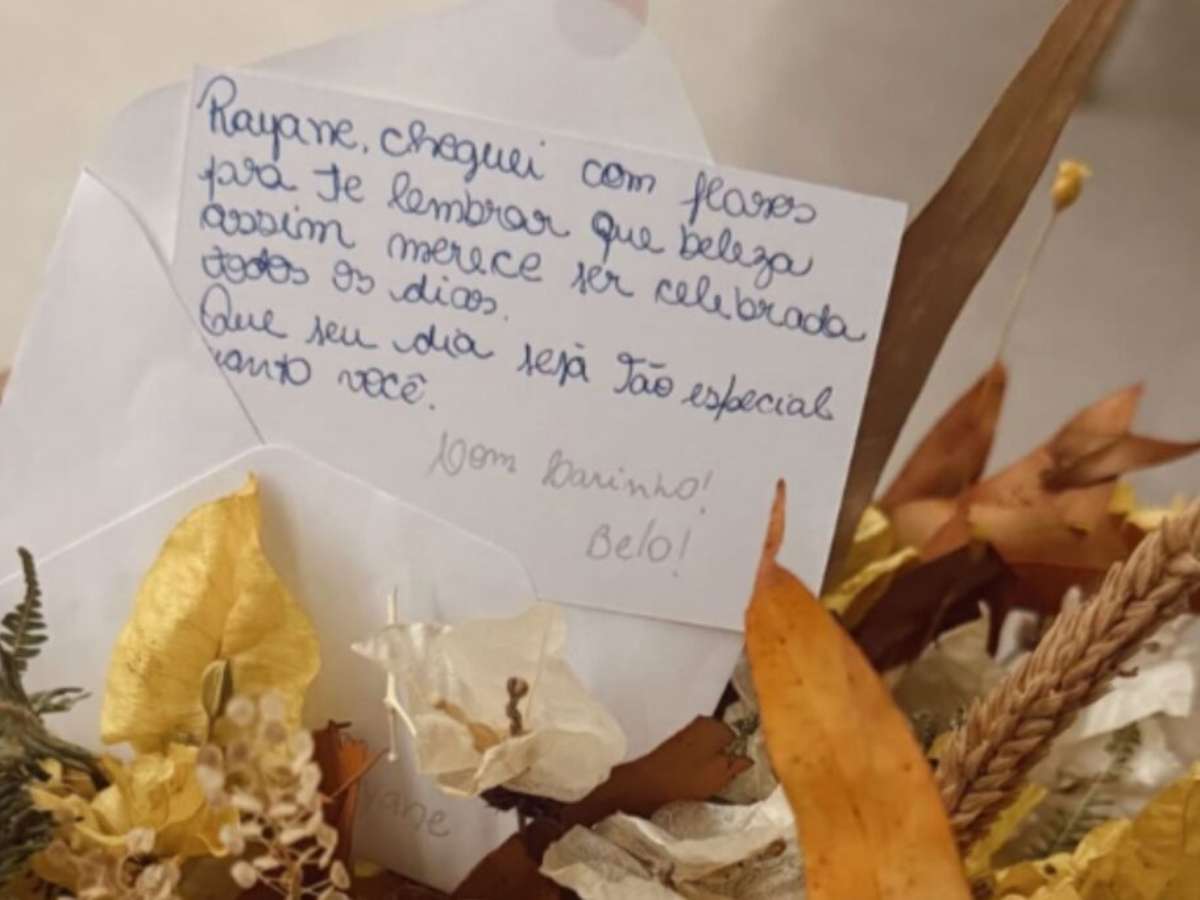 Rayane, cheguei com flores
para te lembrar que beleza
assim merece ser celebrada
todos os dias.
Que seu dia seja Tão especial
uanto você.
Com Carinho!
Belo!
yane